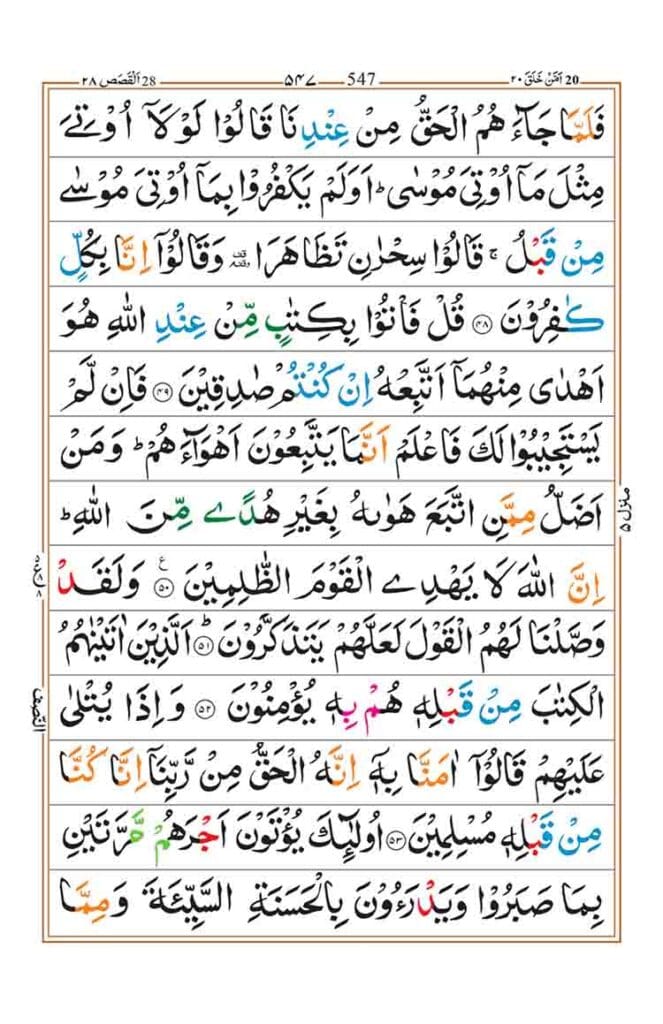 20 اَمَّنْ خَلَقَ ٢٠ 547 ۵۴۷ 28 اَلْقَصَص ٢٨
فَلَمَّا جَآءَ هُمُ الْحَقُّ مِنْ عِنْدِ نَا قَالُوْا لَوْلَآ اُوْتِیَ
مِثْلَ مَاۤ اُوْتِیَ مُوْسٰی ؕ اَوَلَمْ یَکْفُرُوْا بِمَاۤ اُوْتِیَ مُوْسٰی
مِنْ قَبْلُ ۚ قَالُوْا سِحْرٰنِ تَظَاهَرَا ۥ وَقَالُوْۤا اِنَّا بِکُلٍّ
کٰفِرُوْنَ ﴿۴۸﴾ قُلْ فَاْتُوْا بِکِتٰبٍ مِّنْ عِنْدِ اللّٰهِ هُوَ
اَهْدٰی مِنْهُمَاۤ اَتَّبِعْهُ اِنْ کُنْتُمْ صٰدِقِیْنَ ﴿۴۹﴾ فَاِنْ لَّمْ
یَسْتَجِیْبُوْا لَکَ فَاعْلَمْ اَنَّمَا یَتَّبِعُوْنَ اَهْوَآءَ هُمْ ؕ وَمَنْ
اَضَلُّ مِمَّنِ اتَّبَعَ هَوٰىهُ بِغَیْرِ هُدًی مِّنَ اللّٰهِ ؕ
اِنَّ اللّٰهَ لَا یَهْدِی الْقَوْمَ الظّٰلِمِیْنَ ﴿۵۰﴾ ع وَلَقَدْ
وَصَّلْنَا لَهُمُ الْقَوْلَ لَعَلَّهُمْ یَتَذَکَّرُوْنَ ﴿۵۱﴾ اَلَّذِیْنَ اٰتَیْنٰهُمُ
الْکِتٰبَ مِنْ قَبْلِهٖ هُمْ بِهٖ یُؤْمِنُوْنَ ﴿۵۲﴾ وَاِذَا یُتْلٰی
عَلَیْهِمْ قَالُوْۤا اٰمَنَّا بِهٖۤ اِنَّهُ الْحَقُّ مِنْ رَّبِّنَاۤ اِنَّا کُنَّا
مِنْ قَبْلِهٖ مُسْلِمِیْنَ ﴿۵۳﴾ اُولٰٓئِکَ یُؤْتَوْنَ اَجْرَهُمْ مَّرَّتَیْنِ
بِمَا صَبَرُوْا وَیَدْرَءُوْنَ بِالْحَسَنَةِ السَّیِّئَةَ وَمِمَّا
منزل ۵
النّصف